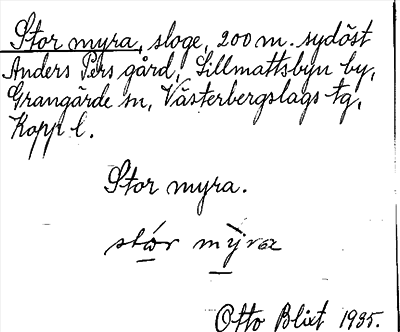 Stor myra, sloge, 200 m. sydöst
Anders Pers gård, Sillmattsbyn by,
Grangärde sn, Västerbergslags tg,
Kopp l.
Stor myra.
stor myra
Otto Blixt 1935.